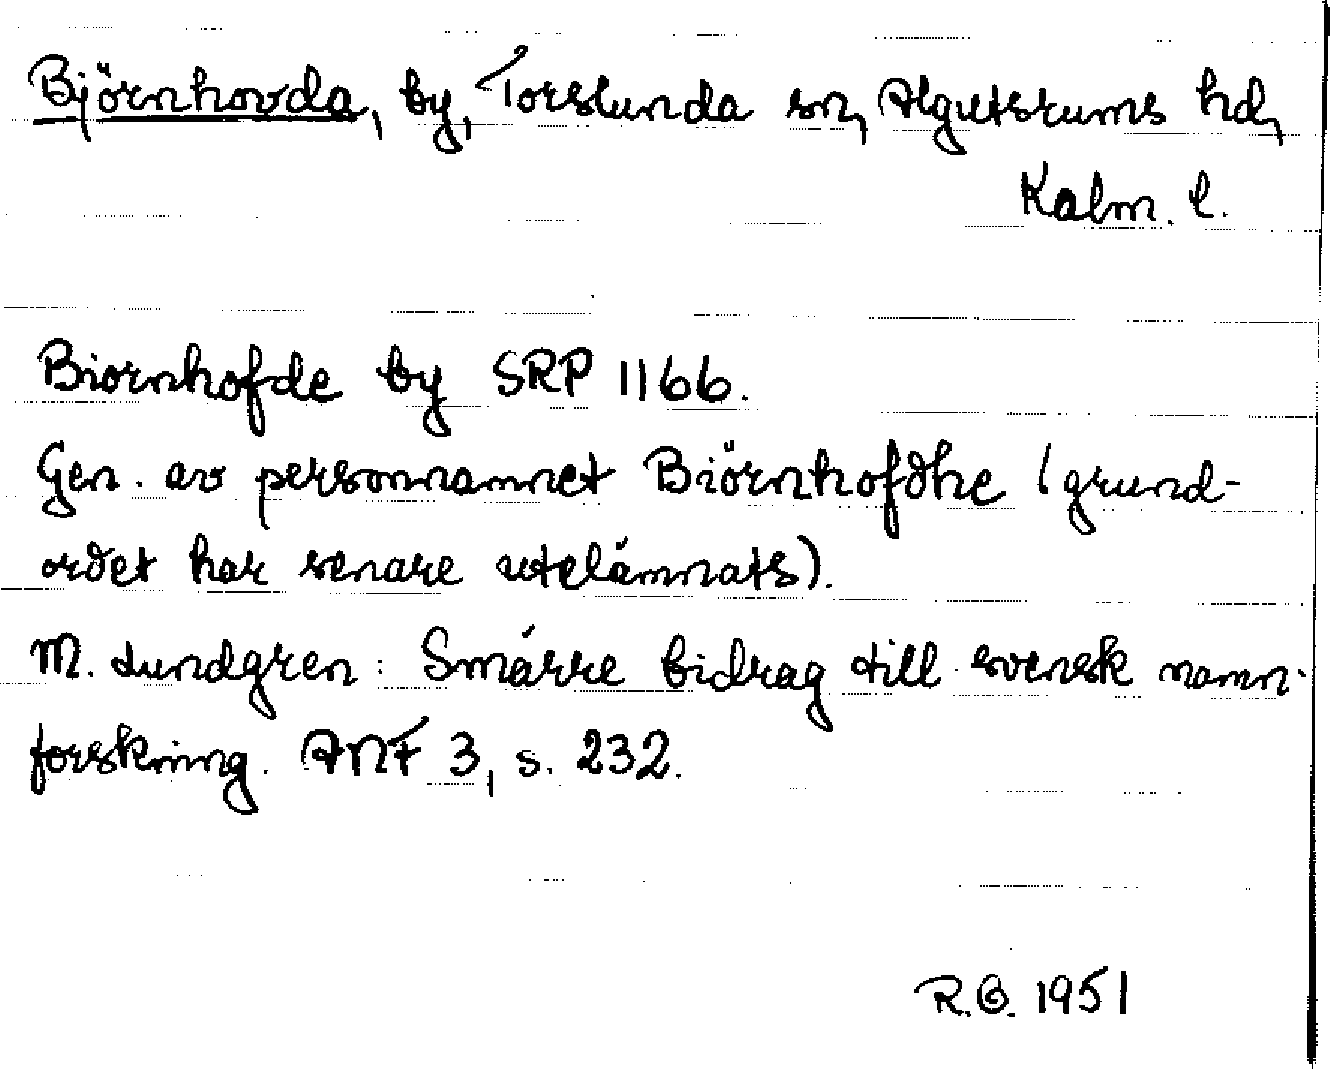 Björnhovda, by, Torslunda sn, Algutsrums hd,
Kalm. l.
Biornhofde by SRP 1166.
Gen. av personnamnet Biörnhofdhe (grund-
ordet har senare utelämnats).
M. Lundgren: Smärre bidrag till svensk namn-
forskning. ANF 3, s. 232.
R.G. 1951